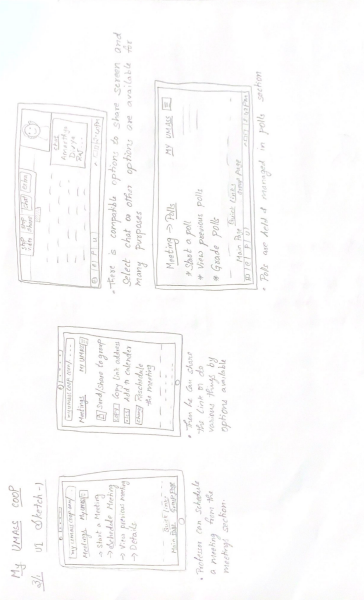 My UMACS COOP
UI (Sketch-1)
Meetings My UMACS
→ Start a Meeting
→ Schedule Meeting
→ View previous meeting
→ Details
Quick links
Main Page Group page
• Professor can schedule
a meeting from the
meetings section.
Meetings My UMACS
Send/Share to group
Copy link address
Add to calendar
Reschedule
the meeting
• Then he can share
the link or do
various things by
options available
Stop
chat
• There is compatible options to share screen and
Select chat or other options are available for
many purposes
Meeting → Polls MY UMACS
* Start a poll
* View previous polls
* Grade polls
Quick links
Main Page Group page
• Polls are held & managed in polls section